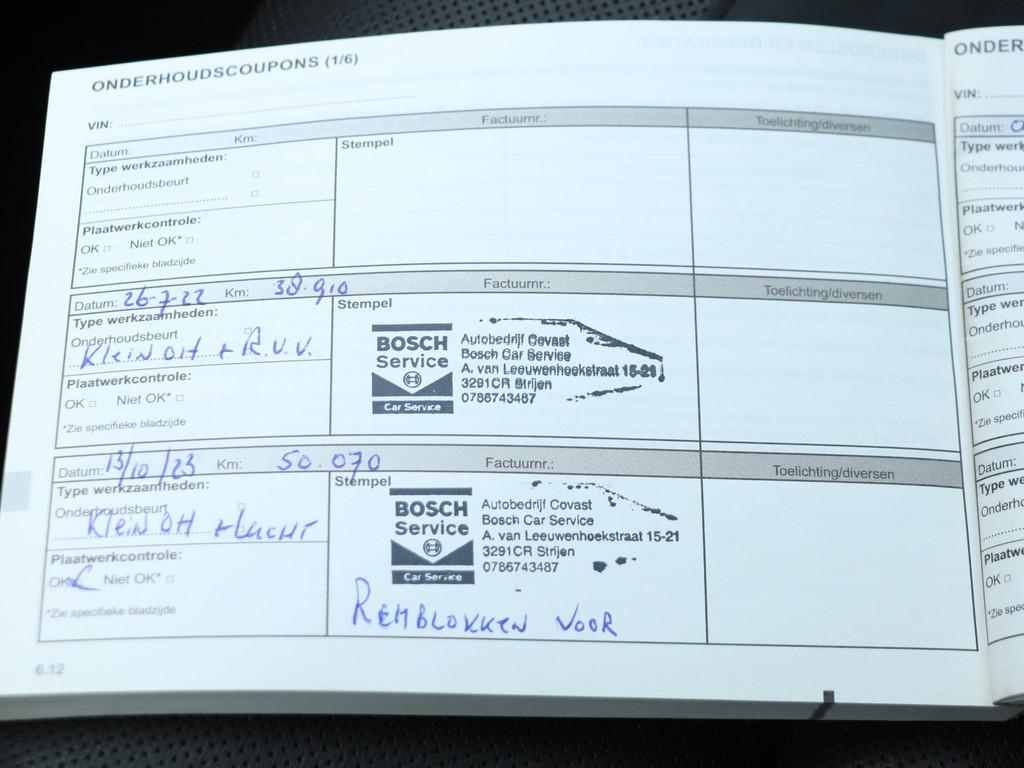 ONDERHOUDSCOUPONS (1/6)
VIN:
Datum: Km: Factuurnr.: Toelichting/diversen
Type werkzaamheden: Stempel
Onderhoudsbeurt
Plaatwerkcontrole:
OK Niet OK*
*Zie specifieke bladzijde
Datum: 26-7-22 Km: 38.910 Factuurnr.: Toelichting/diversen
Type werkzaamheden: Stempel
Onderhoudsbeurt
Klein OH + R.V.V.
Plaatwerkcontrole:
OK Niet OK*
*Zie specifieke bladzijde
BOSCH
Service
Car Service
Autobedrijf Covast
Bosch Car Service
A. van Leeuwenhoekstraat 15-21
3291CR Strijen
0786743487
Datum: 13/10/23 Km: 50.070 Factuurnr.: Toelichting/diversen
Type werkzaamheden: Stempel
Onderhoudsbeurt
Klein OH + Lucht
Plaatwerkcontrole:
OK Niet OK*
*Zie specifieke bladzijde
BOSCH
Service
Car Service
Autobedrijf Covast
Bosch Car Service
A. van Leeuwenhoekstraat 15-21
3291CR Strijen
0786743487
REMBLOKKEN VOOR
6.12
ONDER
VIN:
Datum:
Type werk
Onderhou
Plaatwerk
OK N
*Zie specifie
Datum:
Type wer
Onderhou
Plaatwer
OK N
*Zie specifi
Datum:
Type we
Onderho
Plaatw
OK
*Zie spe